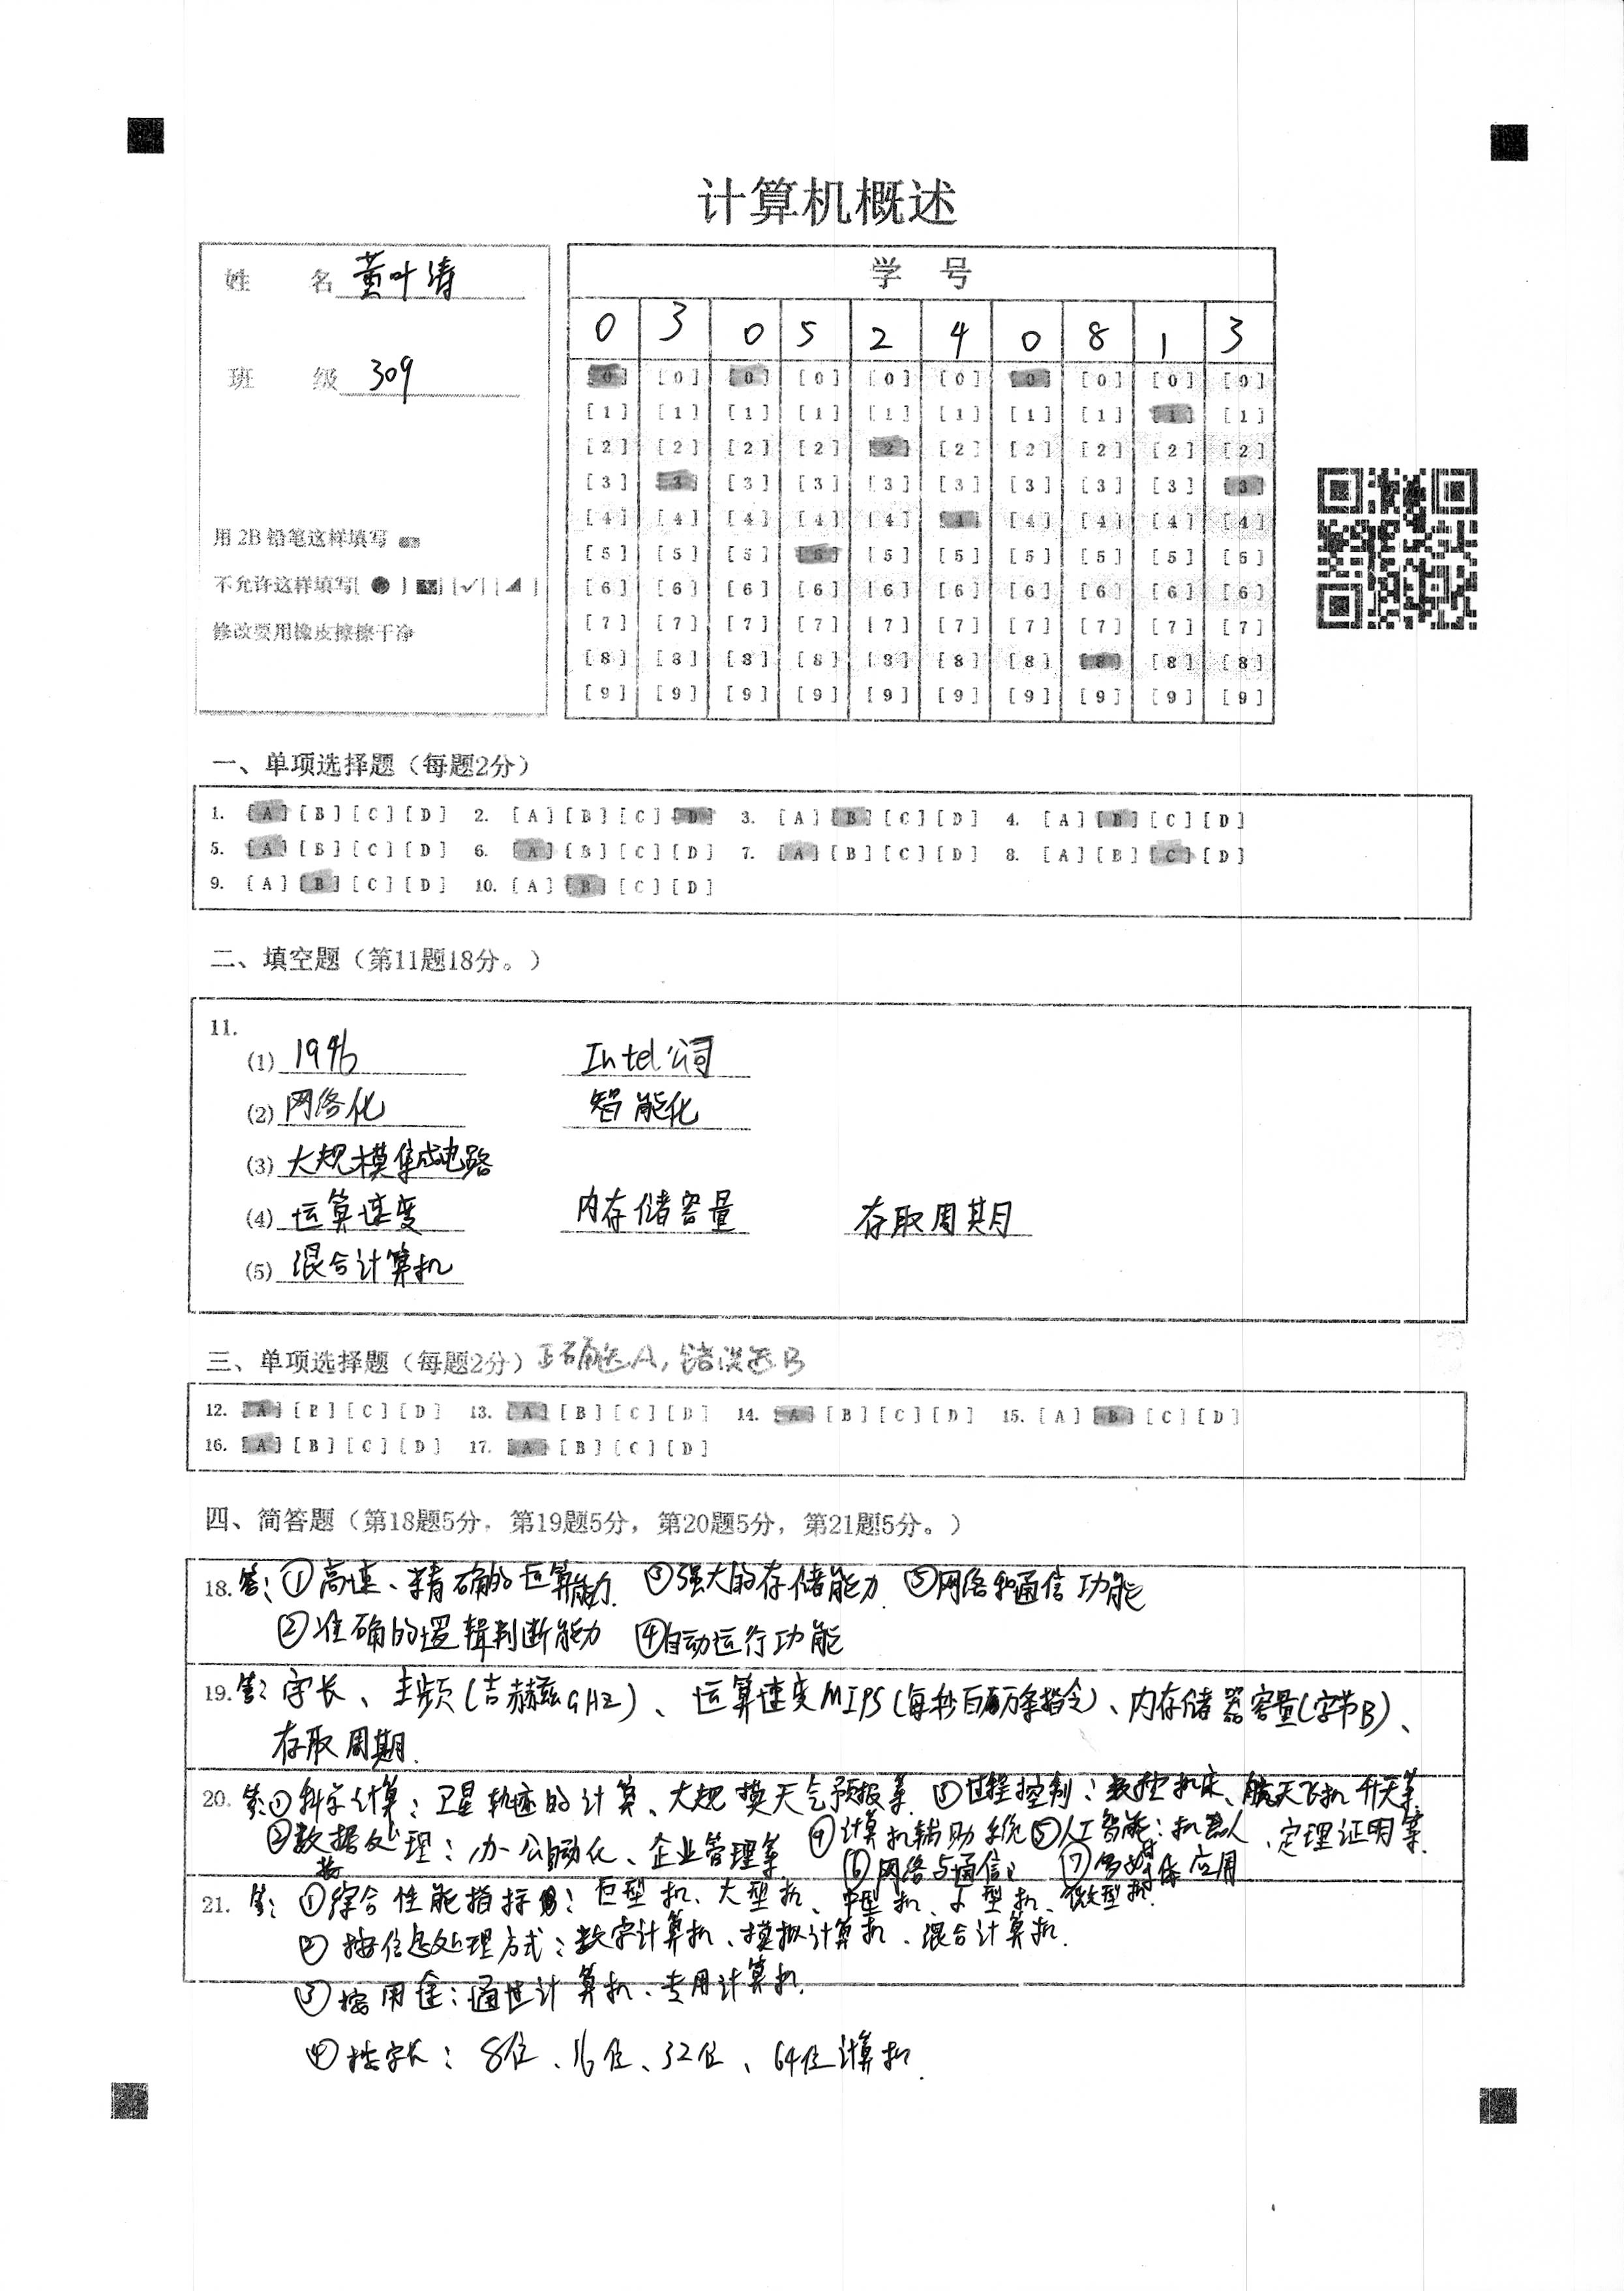 计算机概述
姓 名 黄叶涛
班 级 309
用 2B 铅笔这样填写
不允许这样填写[ ● ] [✓] [◢ ]
修改要用橡皮擦擦干净
学 号
0 3 0 5 2 4 0 8 1 3
[0] [0] [0] [0] [0] [0] [0] [0] [0] [0]
[1] [1] [1] [1] [1] [1] [1] [1] [1] [1]
[2] [2] [2] [2] [2] [2] [2] [2] [2] [2]
[3] [3] [3] [3] [3] [3] [3] [3] [3] [3]
[4] [4] [4] [4] [4] [4] [4] [4] [4] [4]
[5] [5] [5] [5] [5] [5] [5] [5] [5] [5]
[6] [6] [6] [6] [6] [6] [6] [6] [6] [6]
[7] [7] [7] [7] [7] [7] [7] [7] [7] [7]
[8] [8] [8] [8] [8] [8] [8] [8] [8] [8]
[9] [9] [9] [9] [9] [9] [9] [9] [9] [9]
一、单项选择题（每题2分）
1. [A] [B] [C] [D] 2. [A] [B] [C] [D] 3. [A] [B] [C] [D] 4. [A] [B] [C] [D]
5. [A] [B] [C] [D] 6. [A] [B] [C] [D] 7. [A] [B] [C] [D] 8. [A] [B] [C] [D]
9. [A] [B] [C] [D] 10. [A] [B] [C] [D]
二、填空题（第11题18分。）
11.
(1) 1946 Intel公司
(2) 网络化 智能化
(3) 大规模集成电路
(4) 运算速度 内存储容量 存取周期
(5) 混合计算机
三、单项选择题（每题2分）正确选A，错误选B
12. [A] [B] [C] [D] 13. [A] [B] [C] [D] 14. [A] [B] [C] [D] 15. [A] [B] [C] [D]
16. [A] [B] [C] [D] 17. [A] [B] [C] [D]
四、简答题（第18题5分，第19题5分，第20题5分，第21题5分。）
18. 答：①高速、精确的运算能力. ③强大的存储能力. ⑤网络和通信功能
②准确的逻辑判断能力 ④自动运行功能
19. 答：字长、主频(吉赫兹GHZ)、运算速度MIPS(每秒百万条指令)、内存储器容量(字节B)、
存取周期.
20. 答:①科学计算：卫星轨迹的计算、大规模天气预报等. ③过程控制：数控机床、航天飞机升天等.
②数据处理：办公自动化、企业管理等. ④计算机辅助系统 ⑤人工智能：机器人、定理证明等.
⑥网络与通信 ⑦多媒体应用
21. 答：①按综合性能指标：巨型机、大型机、中型机、小型机、微型机.
② 按信息处理方式：数字计算机、模拟计算机、混合计算机.
③ 按用途：通用计算机、专用计算机.
④ 按字长：8位、16位、32位、64位计算机.